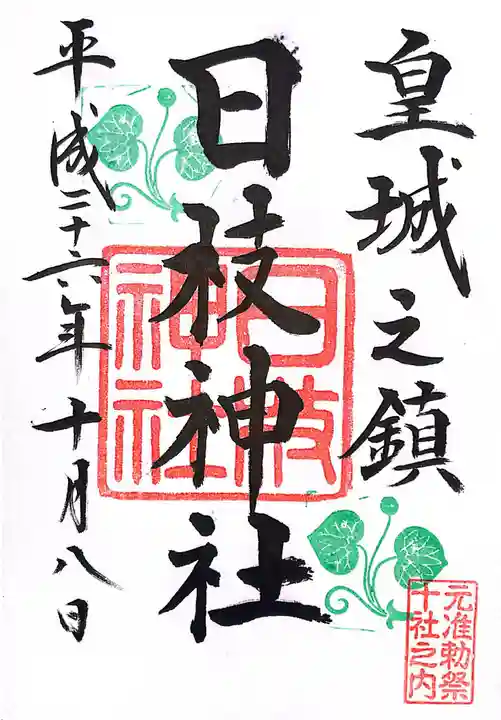 皇城之鎮
日枝神社
平成二十六年十月八日
日枝
神社
元准勅祭
十社之内